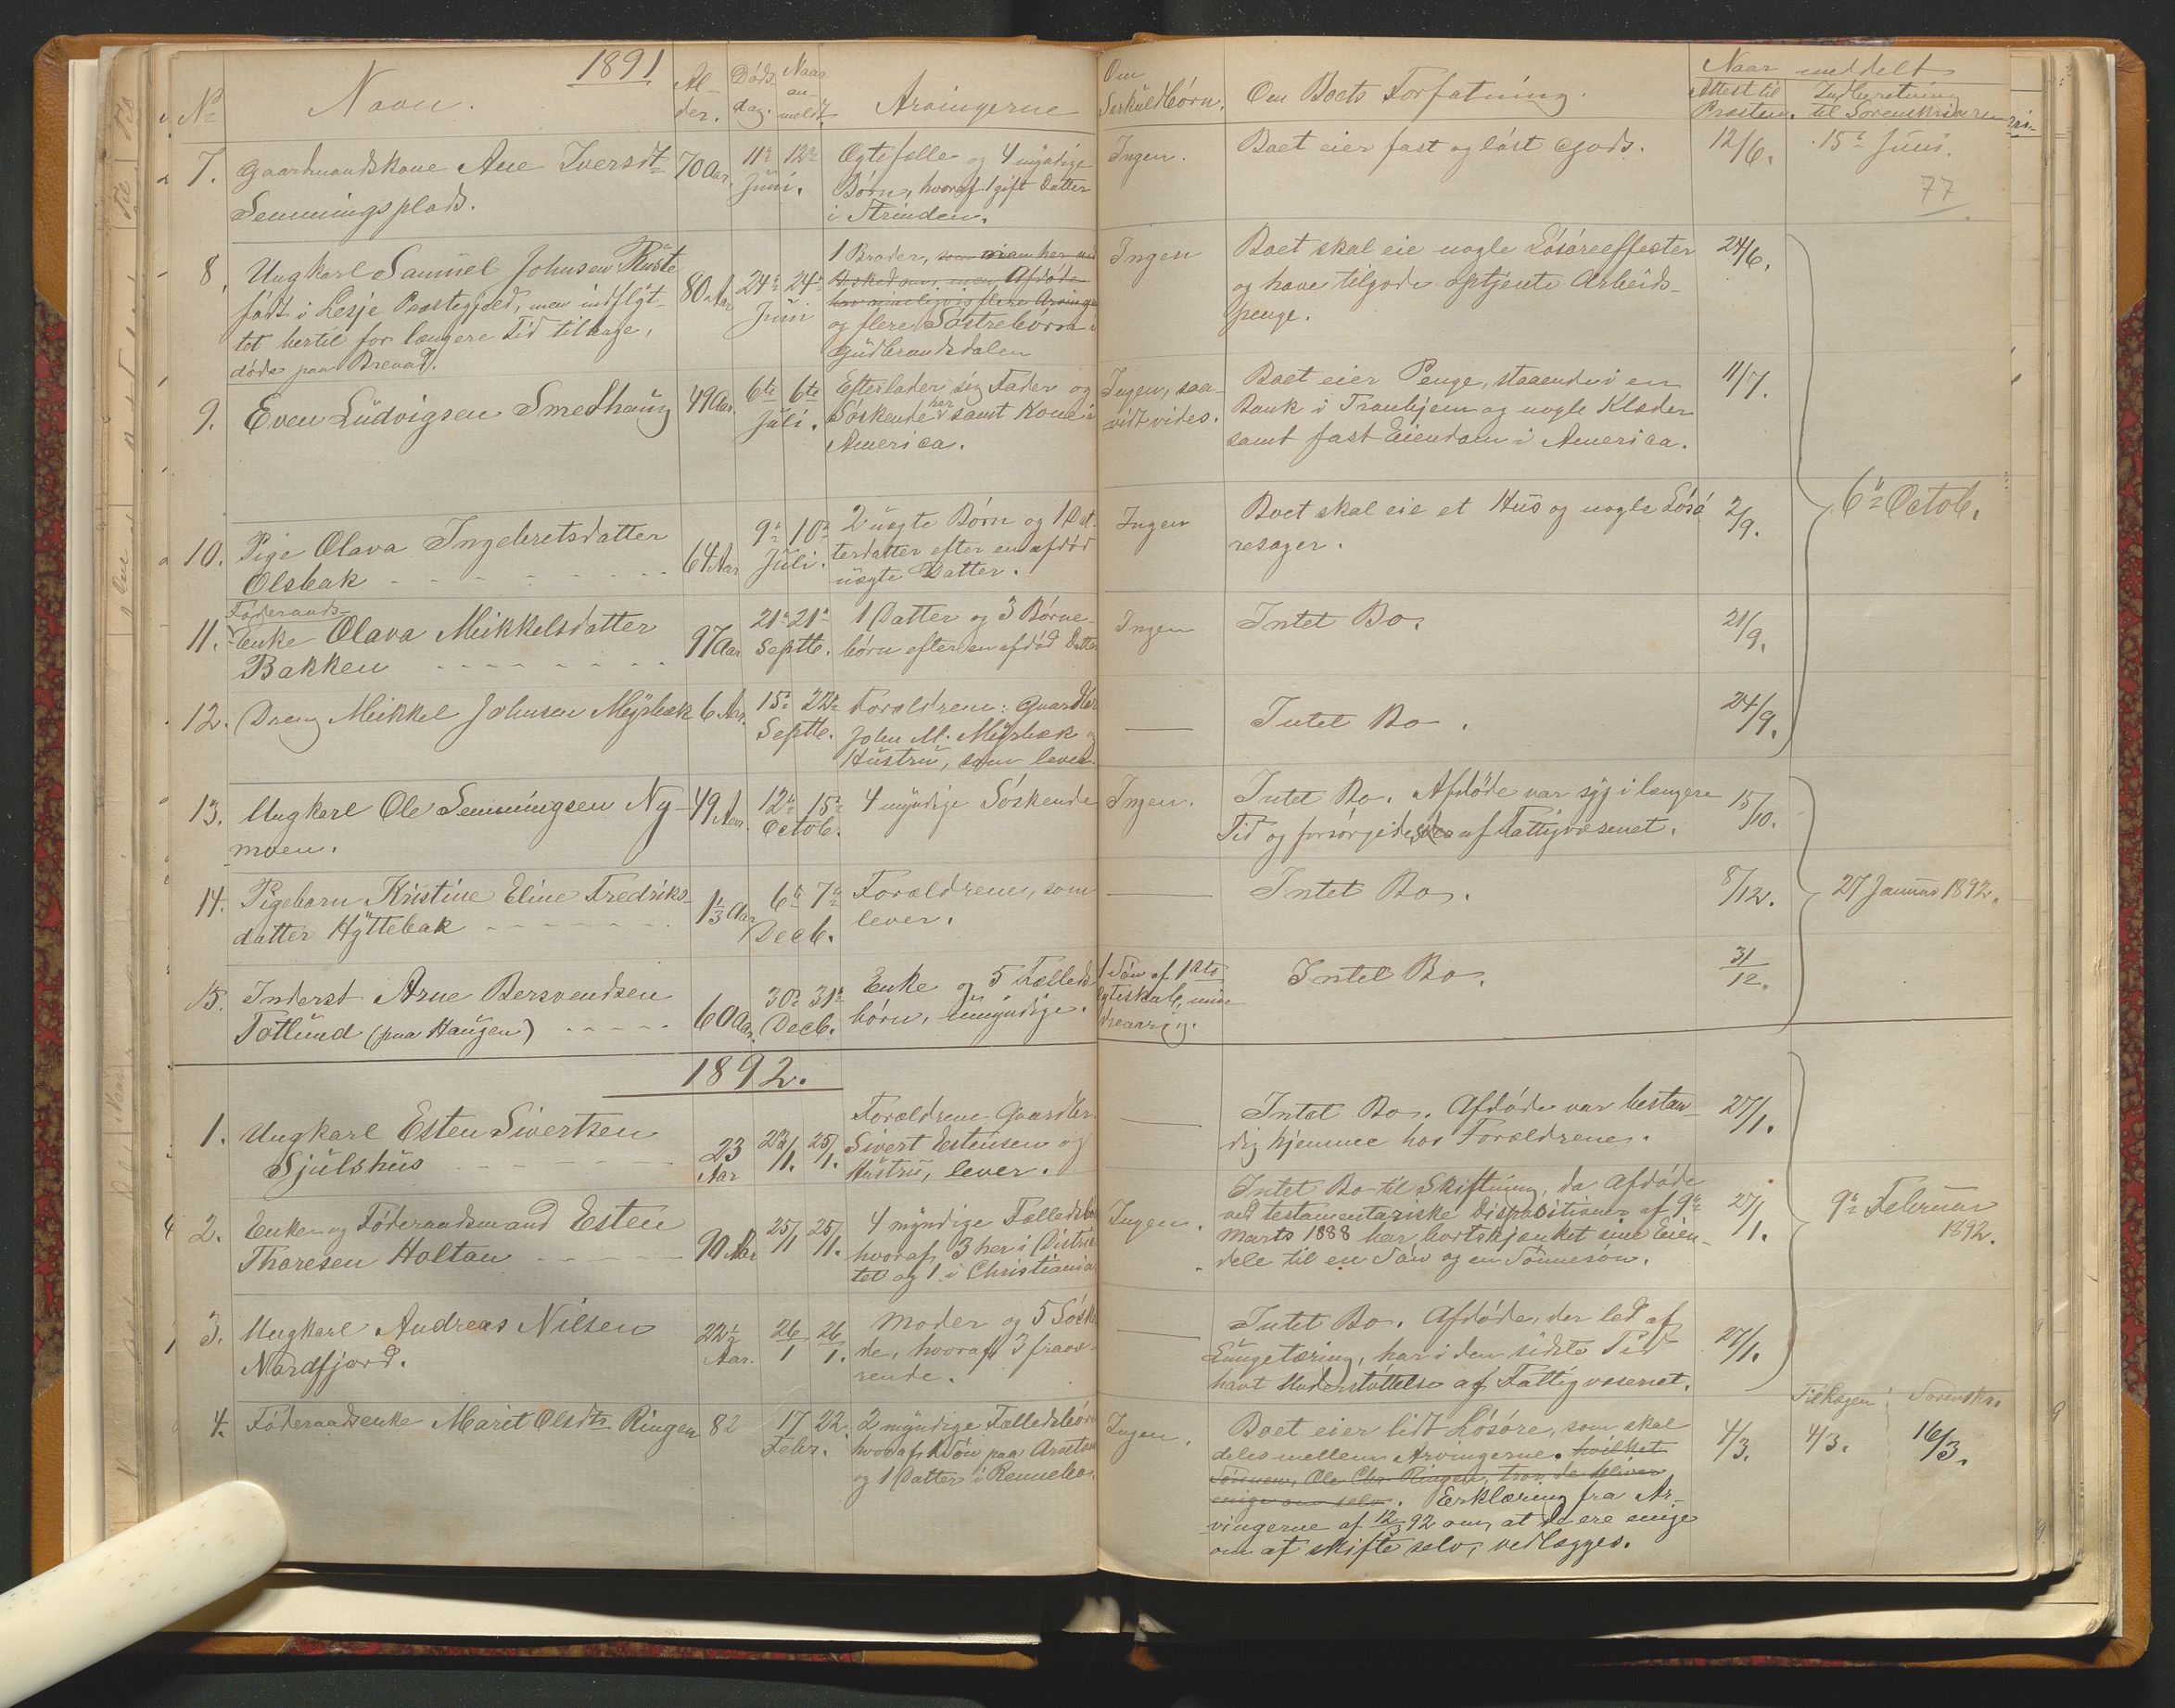 1891
No
Navn.
Al-
der.
Døds
dag.
Naar
an-
meldt.
Arvingerne
Om
Særkuldbörn.
Om Boets Forfatning.
Naar meddelt
Attest til
Præsten.
Indberetning
til Sorenskriveren
7. Gaardmandskone Ane Iversdtr
Semmingsplads.
70 Aar.
11te 12te
Juni.
Ægtefælle og 4 myndige
Börn, hvoraf 1 gift Datter
i Strinden.
Ingen.
Boet eier fast og löst Gods.
12/6.
15de Juni.
77
8. Ungkarl Samuel Johnsen Ruste
født i Lesje Præstegjeld, men indflyt-
tet hertil for længere Tid tilbage,
døde paa Brevad.
80 Aar
24de 24de
Juni
1 Broder, som man her ved
Besked om, men Afdøde
har rimeligvis flere Arvinge
og flere Söstrebörn i
Gudbrandsdalen
Ingen
Boet skal eie nogle Lösöreeffecter
og have tilgode optjente Arbeids-
penge.
24/6.
9. Even Ludvigsen Smedhaug
49 Aar.
6te 6te
Juli.
Efterlader sig Fader og
Söskende her samt Kone i
America.
Ingen, saa-
vidt vides.
Boet eier Penge, staaende i en
Bank i Tronhjem og nogle Klæder
samt fast Eiendom i America.
11/7.
10. Pige Olava Ingebretsdatter
Olsbak
64 Aar
9de 10de
Juli.
2 uægte Börn og 1 Dat-
terdatter efter en afdöd
uægte Datter.
Ingen
Boet skal eie et Hus og nogle Lösö
resager.
2/9.
6te Octob.
11. Föderaads-
Enke Olava Mikkelsdatter
Bakken
97 Aar
21de 21de
Septb.
1 Datter og 3 Börne-
börn efter en afdöd Datter
Ingen
Intet Bo.
21/9.
12. Dreng Mikkel Johnsen Myrbæk
6 Aar.
15de 22de
Septb.
Forældrene: Gaardbr
John M. Myrbæk og
Hustru, som lever.
Intet Bo.
24/9.
13. Ungkarl Ole Semmingsen Ny-
moen.
49 Aar.
12te 15de
Octob.
4 myndige Söskende
Ingen.
Intet Bo. Afdöde var syg i længere
Tid og forsörgedes af Fattigvæsenet.
15/10.
14. Pigebarn Kristine Eline Fredriks-
datter Hyttebak
1 1/3 Aar
6te 7de
Decb.
Forældrene, som
lever.
Intet Bo.
8/12.
27 Januar 1892.
15. Inderst Arne Bersvendsen
Totlund (paa Haugen)
60 Aar.
30te 31te
Decb.
Enke og 5 Fælleds
börn, umyndige.
1 Sön af 1ste
Ægteskab, min-
dreaarig.
Intet Bo.
31/12.
1892.
1. Ungkarl Esten Sivertsen
Sjulshus
23
Aar
23/1. 25/1.
Forældrene Gaardbr.
Sivert Estensen og
Hustru, lever.
Intet Bo. Afdöde var bestan-
dig hjemme hos Forældrene.
27/1.
2. Enkem. og Föderaadsmand Esten
Thoresen Holtan
90 Aar
25/1 25/1.
4 myndige Fælledsbör
hvoraf 3 her i Distric
tet og 1 i Christiania
Ingen.
Intet Bo til Skiftning, da Afdöde
ved testamentariske Dispositioner af 9de
Marts 1888 har bortskjænket sine Eien-
dele til en Sön og en Sönnesön.
27/1.
9de Februar
1892.
3. Ungkarl Andreas Nilsen
Nordfjord.
22 1/2
Aar.
26/1 26/1.
Moder og 5 Sösk
de, hvoraf 3 fravæ-
rende.
Intet Bo. Afdöde, der led af
Lungetæring, har i den sidste Tid
havt Understöttelse af Fattigvæsenet.
27/1.
4. Föderaadsenke Marit Olsdtr Ringen
82
17 22.
Febr.
2 myndige Fælledsbörn
hvoraf 1 Sön paa
og 1 Datter i Rennebo.
Ingen.
Boet eier lidt Lösöre, som skal
deles mellem Arvingerne. hvilket
Sönnen, Ole Chr. Ringen, tror de bliver
enige om selv. Erklæring fra Ar-
vingerne af 12/3 92 om, at de ere enige
om at skifte selv, vedlægges.
4/3.
4/3.
Sorenskr.
16/3.